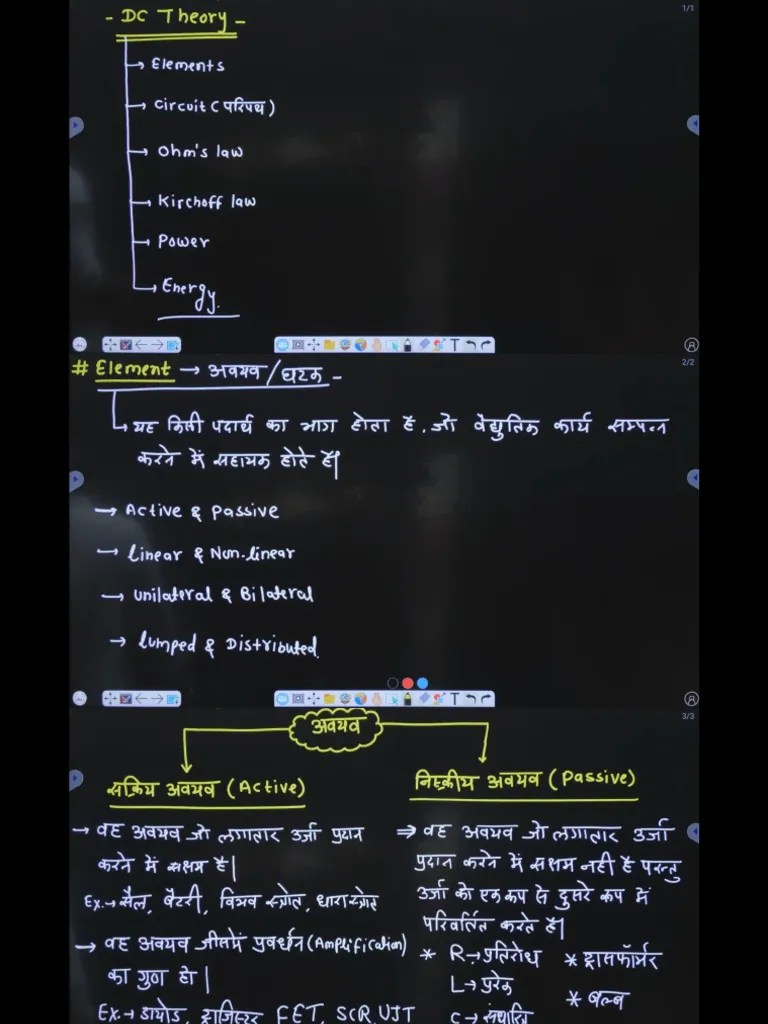 1/1
- DC Theory -
→ Elements
→ Circuit (परिपथ)
→ Ohm's law
→ Kirchoff law
→ Power
→ Energy.
2/2
# Element → अवयव/घटक -
→ यह किसी पदार्थ का भाग होता है, जो वैद्युतिक कार्य सम्पन्न
करने में सहायक होते हैं।
→ Active & Passive
→ linear & Non-linear
→ unilateral & Bilateral
→ lumped & Distributed.
3/3
अवयव
सक्रिय अवयव (Active)
→ वह अवयव जो लगातार उर्जा प्रदान
करने में सक्षम है।
Ex.→ सैल, बैटरी, विभव स्त्रोत, धारा स्त्रोत
→ वह अवयव जीसमें प्रवर्धन (Amplification)
का गुण हो।
Ex.→ डायोड, ट्रांजिस्टर FET, SCR, UJT
निष्क्रीय अवयव (Passive)
⇒ वह अवयव जो लगातार उर्जा
प्रदान करने में सक्षम नही है परन्तु
उर्जा को एक रूप से दुसरे रूप में
परिवर्तित करते हैं।
* R→ प्रतिरोध * ट्रांसफॉर्मर
L→ प्रेरक
* बल्ब
C→ संधारित्र